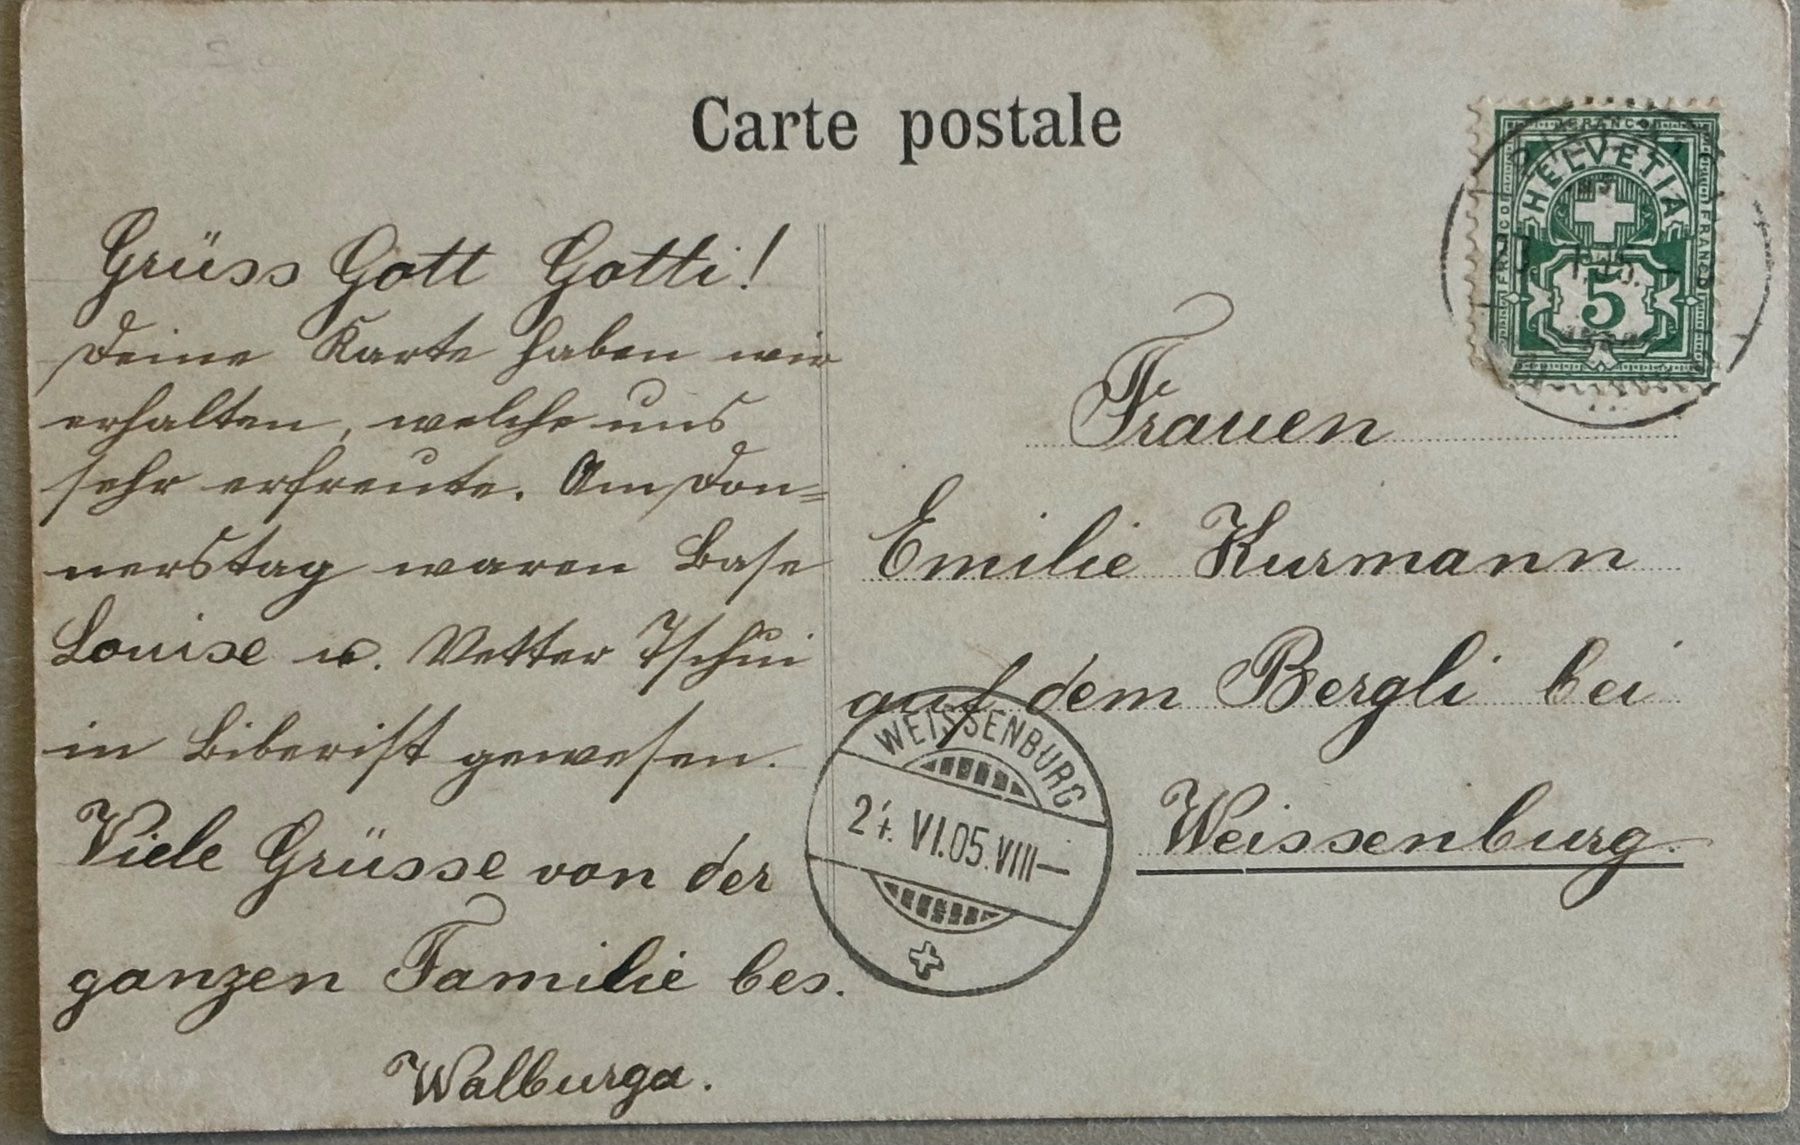 Carte postale
FRANCO
HELVETIA
FRANCO
FRANCO
5
Grüss Gott Gotti!
Deine Karte haben wir
erhalten, welche uns
sehr erfreute. Am Don=
nerstag waren Base
Louise u. Vetter Tschui
in Biberist gewesen.
Viele Grüsse von der
ganzen Familie bes.
Walburga.
Frauen
Emilie Kurmann
auf dem Bergli bei
Weissenburg.
WEISSENBURG
24. VI.05.VIII—